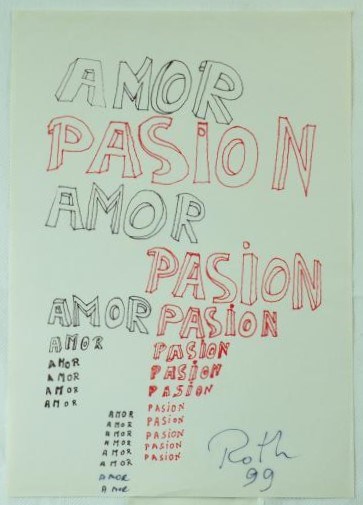 AMOR
PASION
AMOR
PASION
AMOR PASION
AMOR PASION
AMOR PASION
AMOR
AMOR PASION
AMOR PASION
AMOR
AMOR PASION
AMOR PASION
AMOR PASION
AMOR PASION
AMOR
AMOR
AMOR
Roth
99